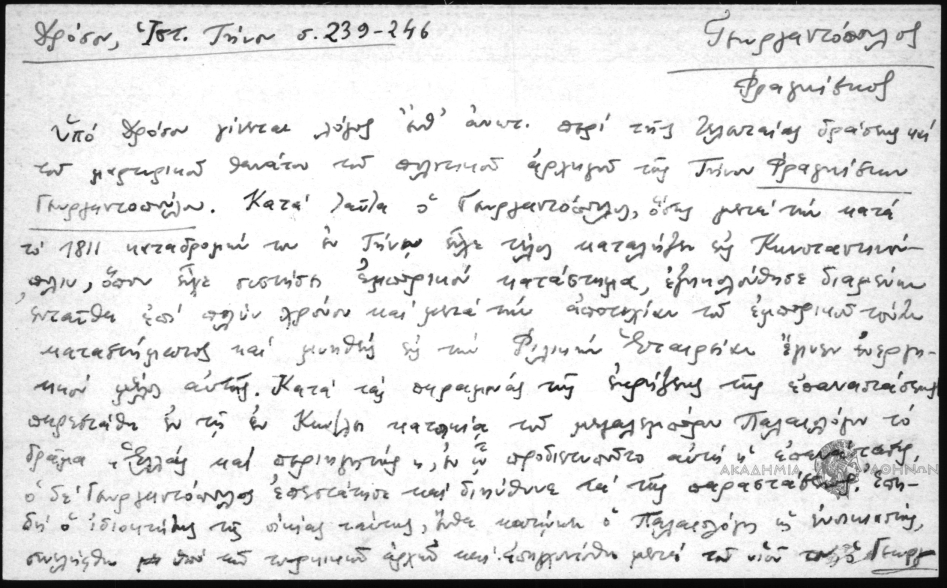 Δρόσου, Ἱστ. Τήνου σ. 239-246
Γεωργαντόπουλος
Φραγκίσκος
Ὑπό Δρόσου γίνεται λόγος ἔνθ' ἀνωτ. περί τῆς τελευταίας δράσεως καί
τοῦ μαρτυρικοῦ θανάτου τοῦ πολιτικοῦ ἀρχηγοῦ τῆς Τήνου Φραγκίσκου
Γεωργαντοπούλου. Κατά ταῦτα ὁ Γεωργαντόπουλος, ὅστις μετά τήν κατά
τό 1811 καταδρομήν του ἐν Τήνῳ εἶχε τέλος καταλήξει εἰς Κωνσταντινού-
πολιν, ὅπου εἶχε συστήσει ἐμπορικόν κατάστημα, ἐξηκολούθησε διαμένων
ἐνταῦθα ἐπί πολύν χρόνον καί μετά τήν ἀποτυχίαν τοῦ ἐμπορικοῦ τούτου
καταστήματος καί μυηθείς εἰς τήν Φιλικήν Ἑταιρείαν ἔγινεν ἐνεργη-
τικόν μέλος αὐτῆς. Κατά τάς παραμονάς τῆς ἐκρήξεως τῆς ἐπαναστάσεως
παρεστάθη ἐν τῇ ἐν Κων/λει κατοικίᾳ τοῦ μεγαλεμπόρου Παλαιολόγου τό
δρᾶμα "Ἑλλάς καί περιηγητής", ἐν ᾧ προδιετυποῦτο αὐτή ἡ ἐπανάστασις,
ὁ δέ Γεωργαντόπουλος ἐπεστάτησε καί διηύθυνε τά τῆς παραστάσεως. Ἐπει-
δή ὁ ἰδιοκτήτης τῆς οἰκίας ταύτης, ἔνθα κατῴκει ὁ Παλαιολόγος ὡς ἐνοικιαστής,
συνελήφθη ὑπό τῶν τουρκικῶν ἀρχῶν καί ἀπηγχονίσθη μετά τοῦ υἱοῦ του, ὁ Γεωργ
ΑΚΑΔΗΜΙΑ ΑΘΗΝΩΝ